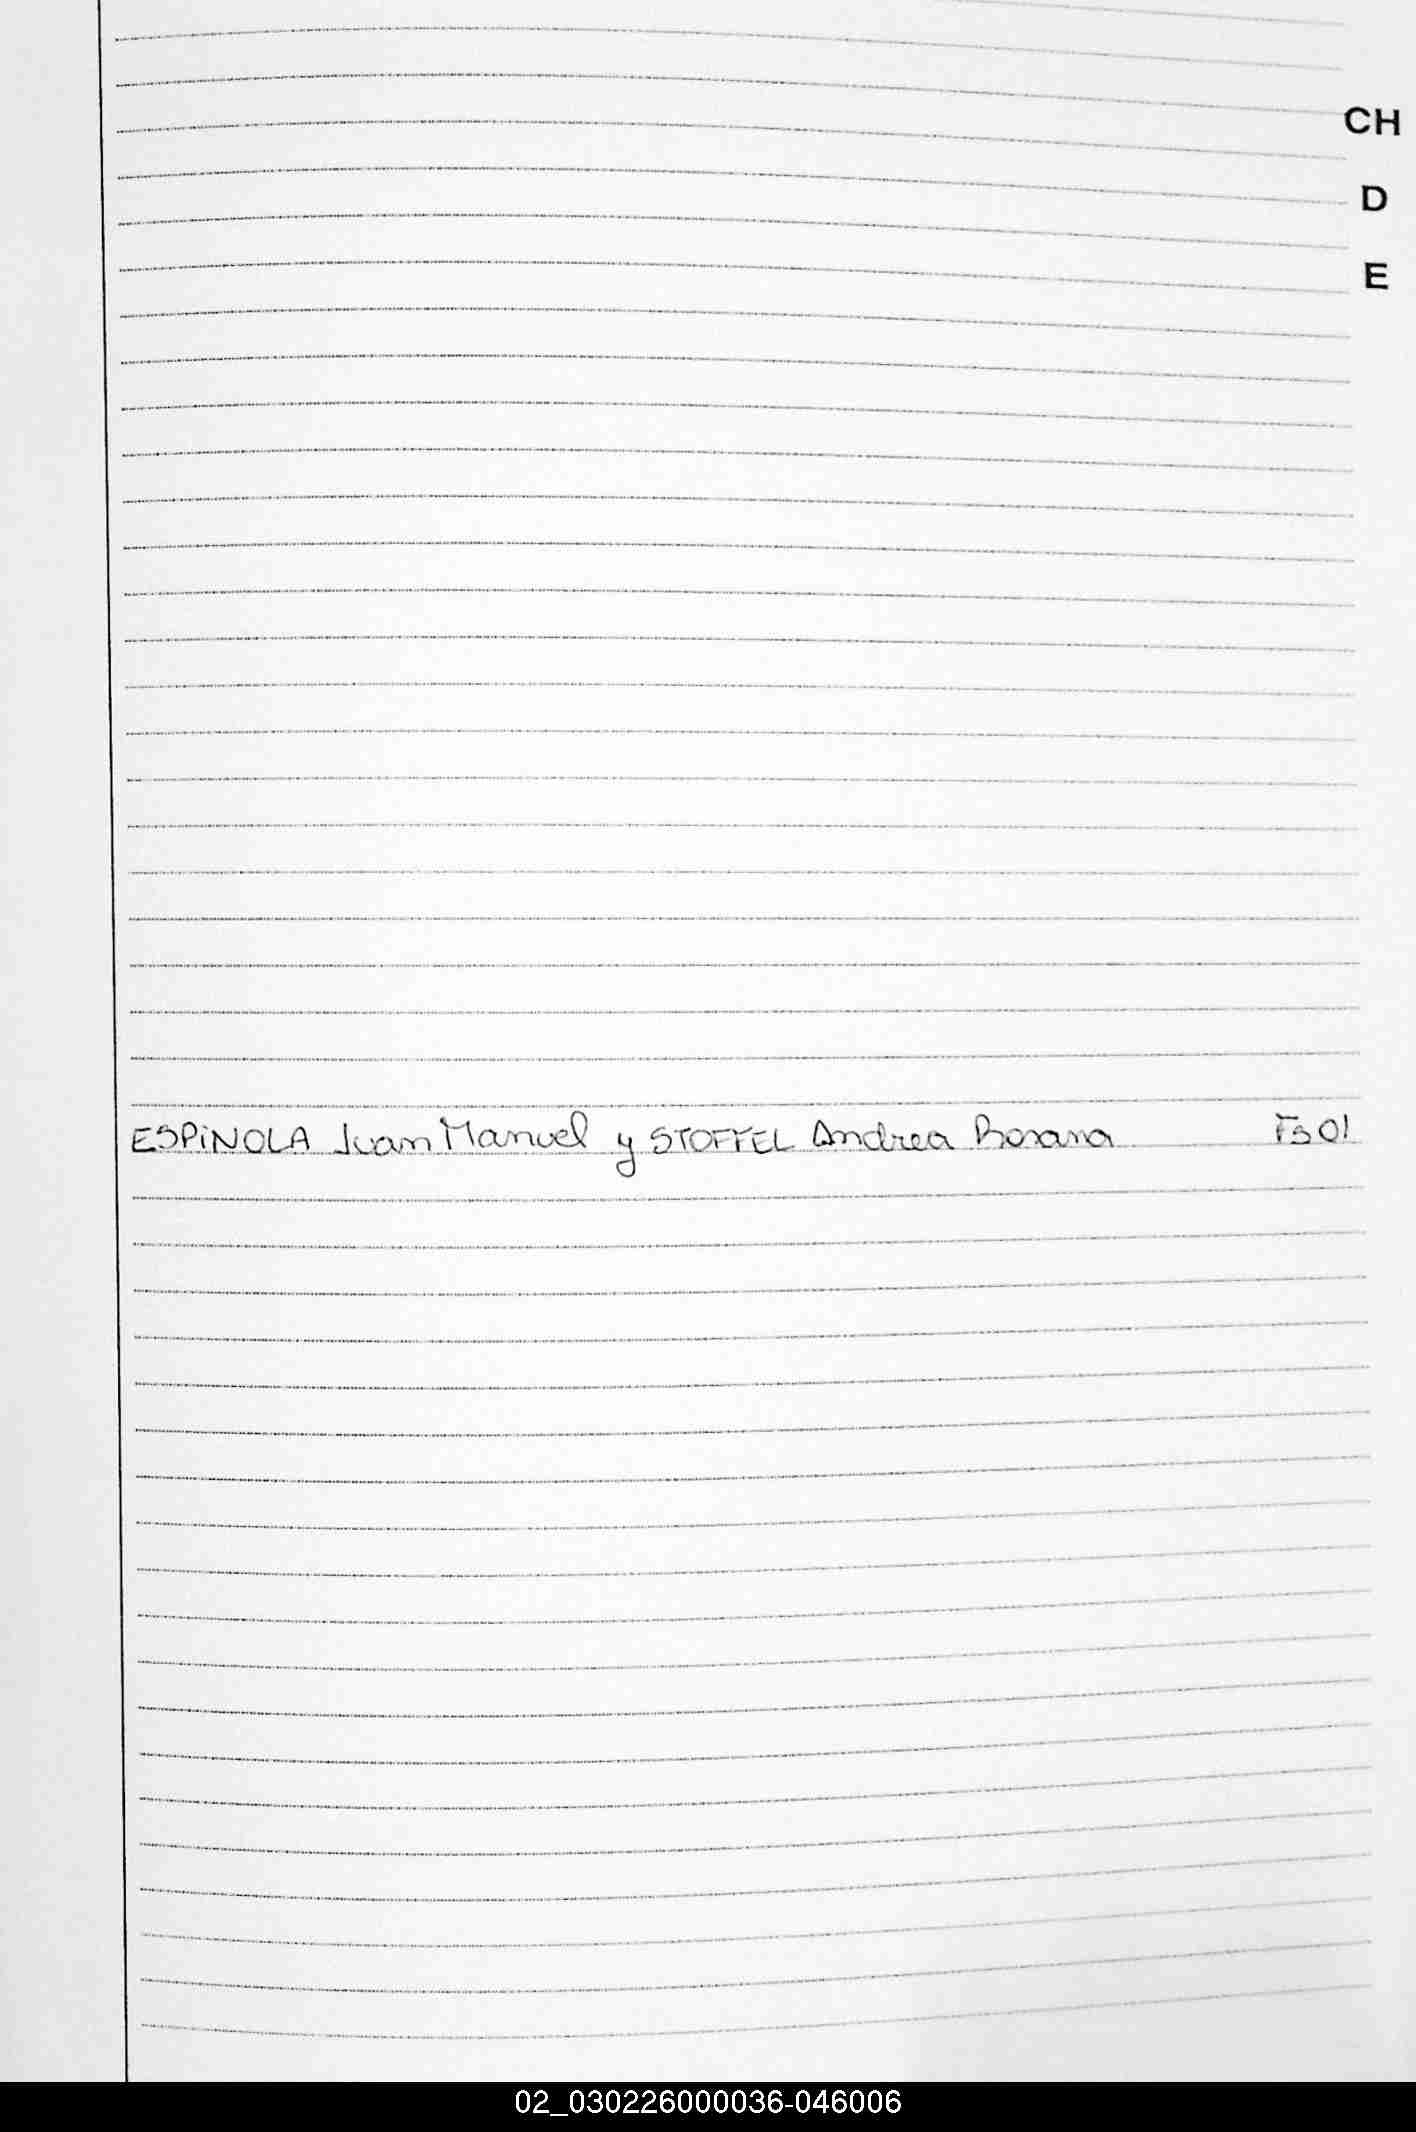 CH
D
E
ESPINOLA Juan Manuel y STOFFEL Andrea Rosana Fs 01
02_030226000036-046006